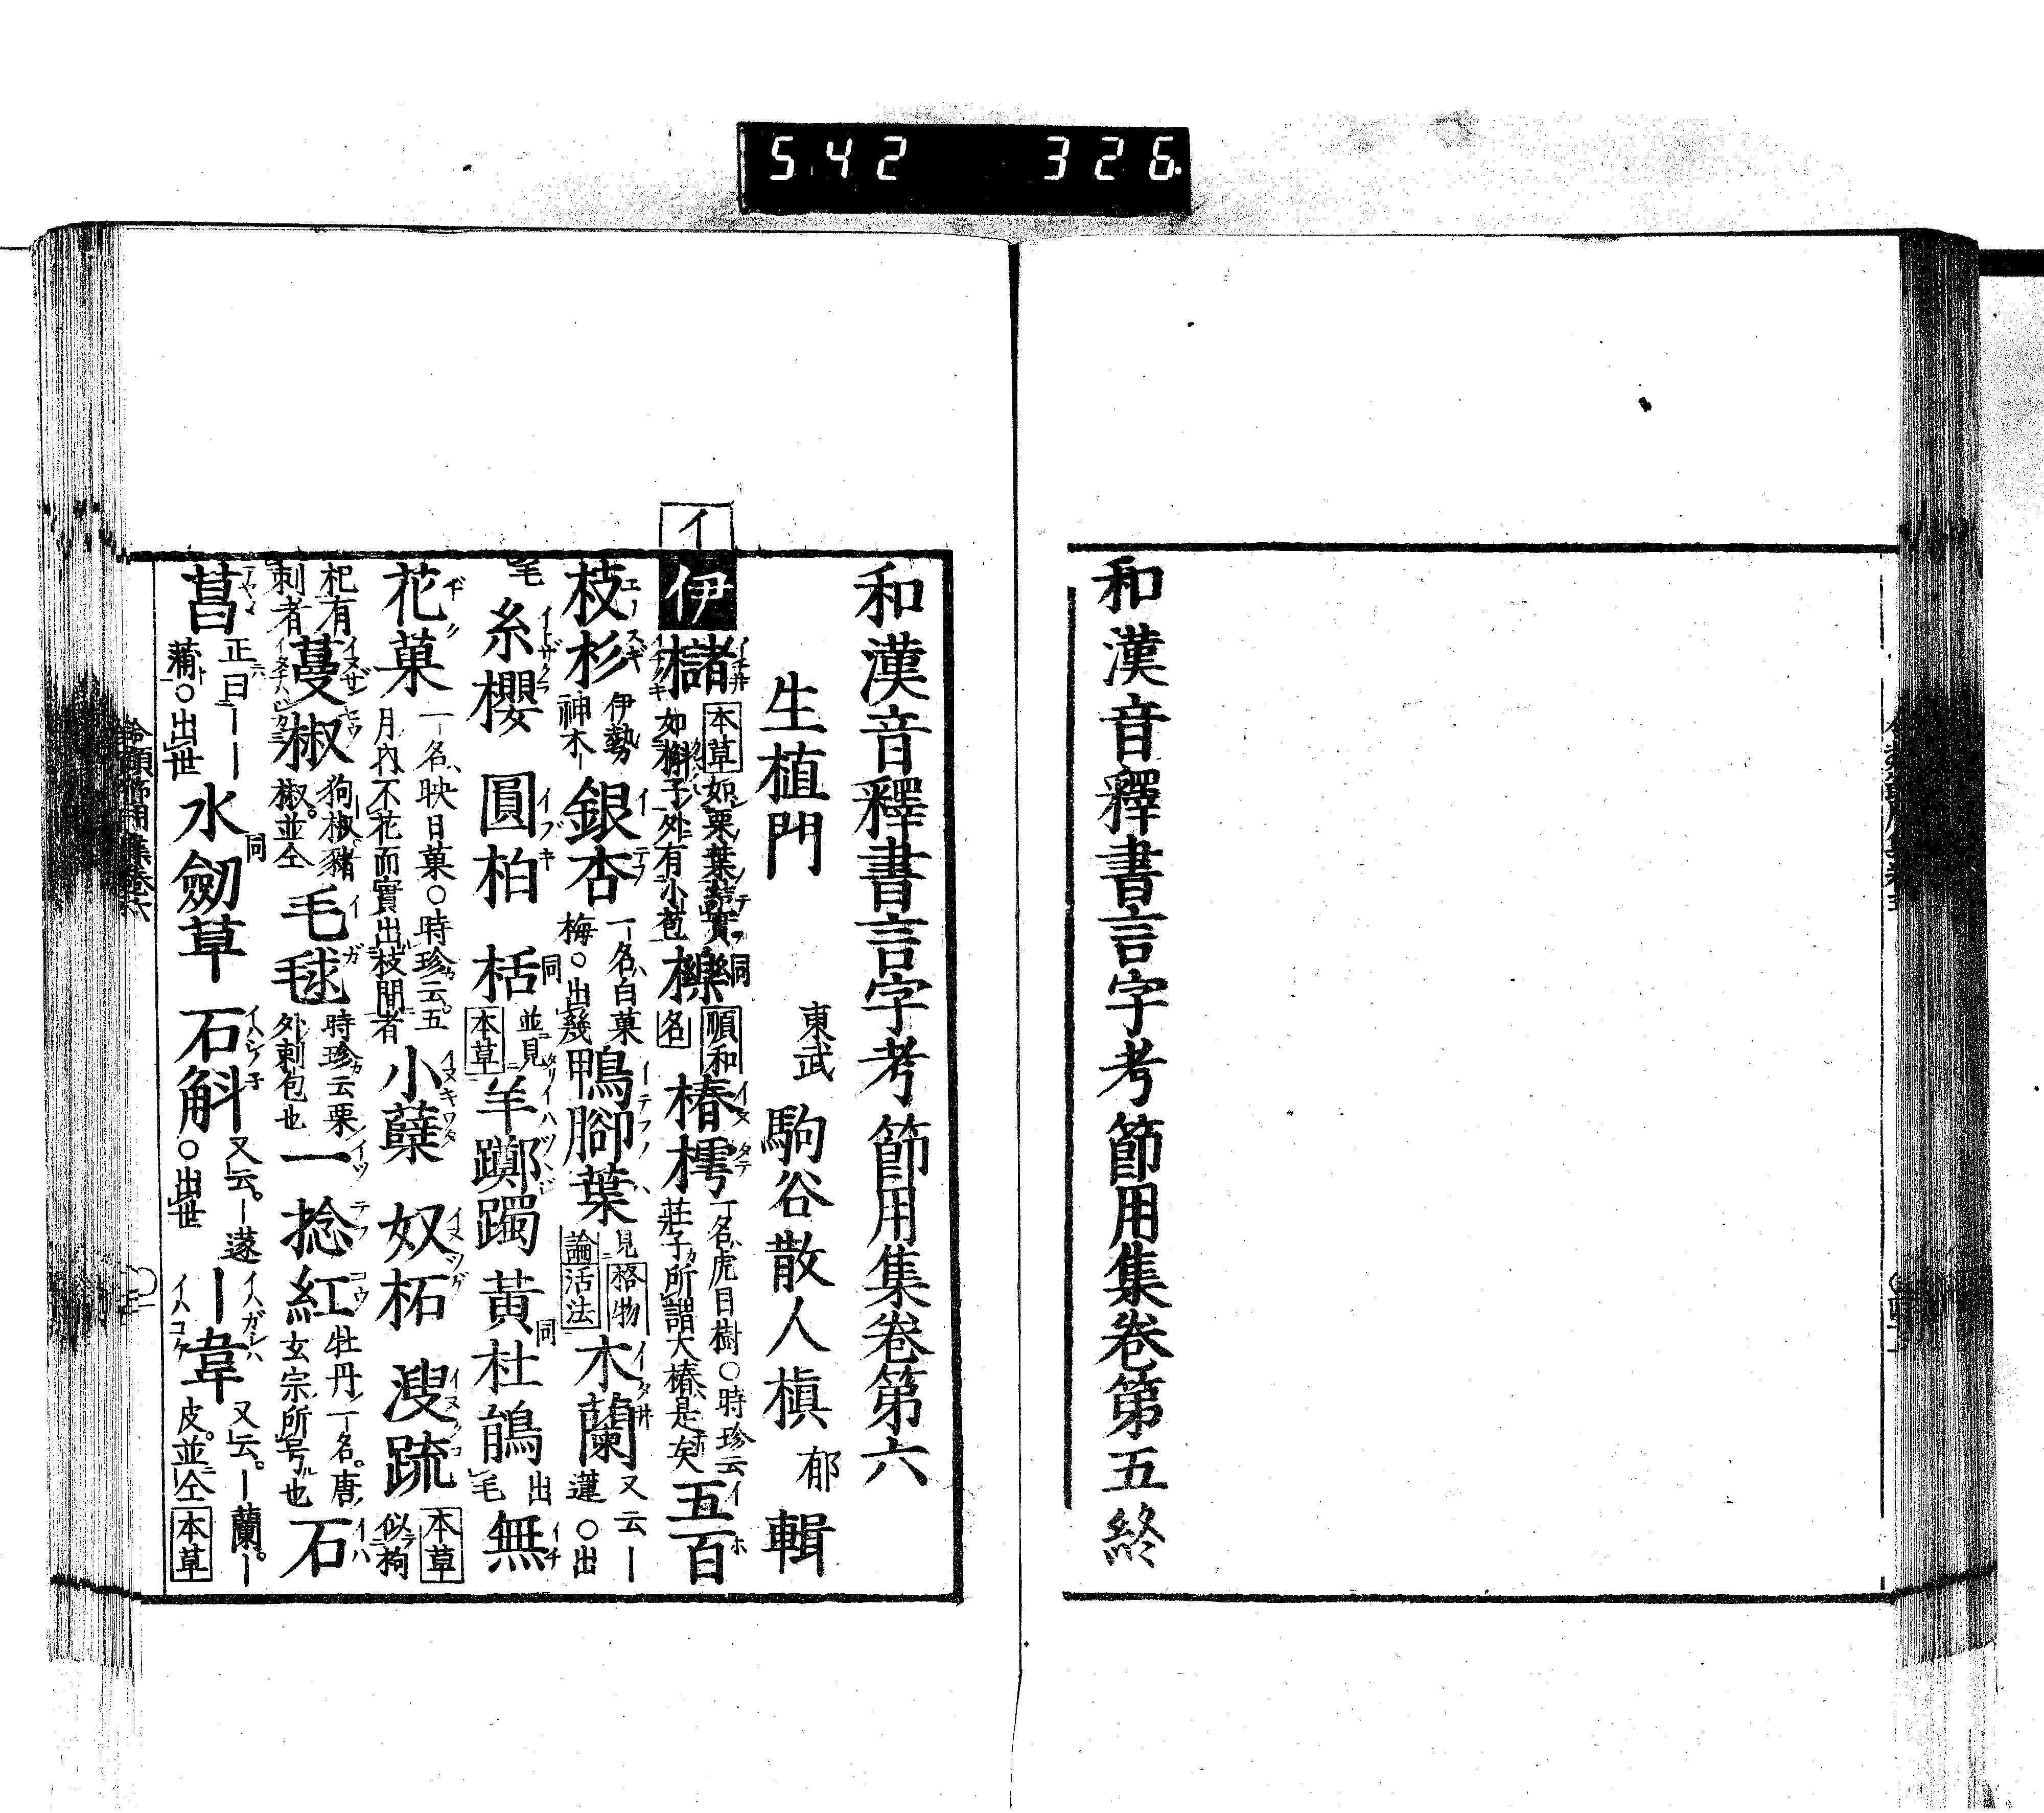 542 326.
和漢音釋書言字考節用集卷第五終
和漢音釋書言字考節用集卷第六
生植門 東武 駒谷散人槙 郁 輯
イ
伊 櫧 本草如栗葉 實如槲子外有小苞 櫟 同 順和名 椿樗 一名虎目樹○時珍云莊子所謂大椿是矣 五百
枝杉 伊勢神木 銀杏 一名白菓梅○出 鴨脚葉 見格物論活法 木蘭 又云｜蓮○出
毛 糸櫻 圓柏 栝 同 並見本草 羊躑躅 黃杜鵑 同 出毛 無
花菓 一名映日菓○時珍云五月內不花而實出枝間者 小蘗 奴柘 溲疏 本草似枸
杞有刺者 蔓椒 狗椒豬椒並仝 毛毬 時珍云栗外刺包也 一捻紅 牡丹一名唐玄宗所号也 石
菖 正曰｜｜蒲○出世 水劒草 同 石斛 又云｜蓫○出世 ｜韋 又云｜蘭｜皮並仝本草